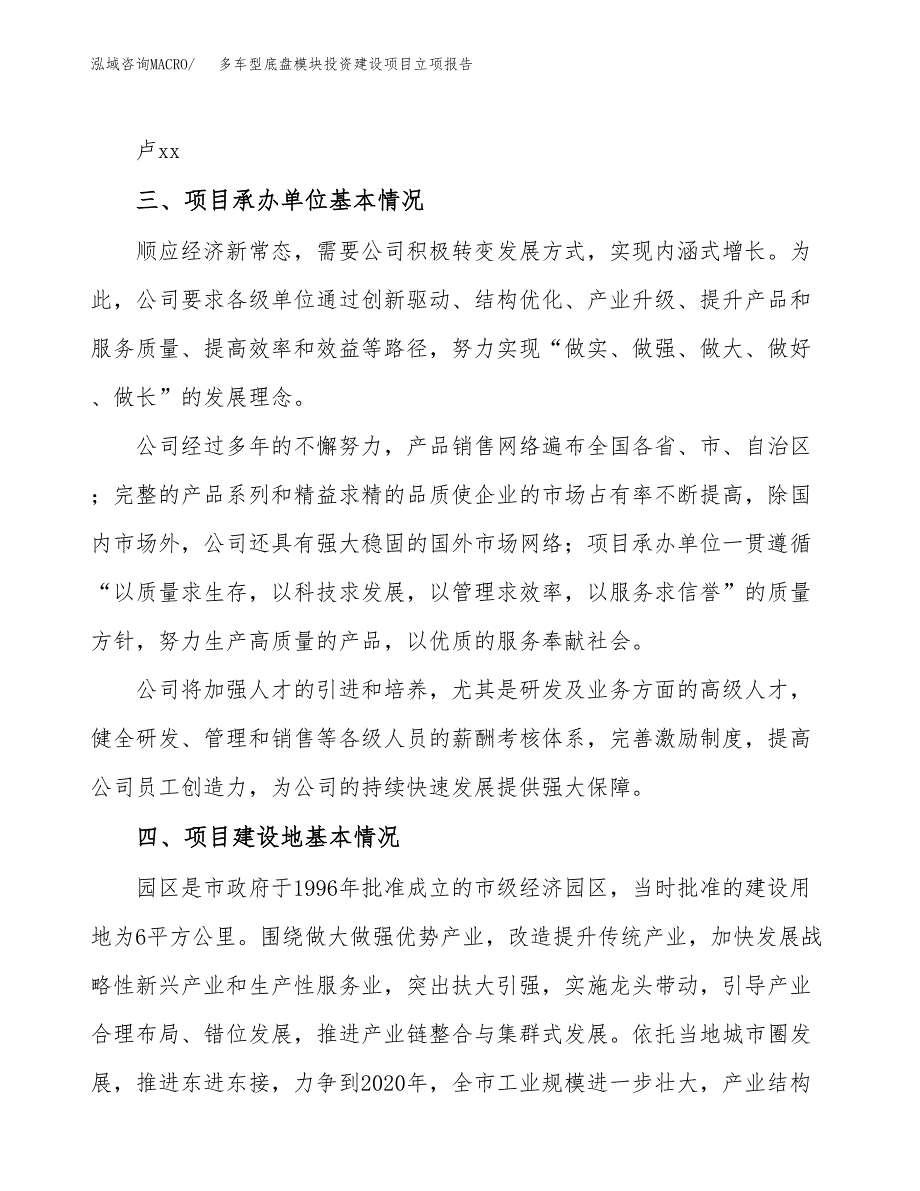 泓域咨询MACRO/ 多车型底盘模块投资建设项目立项报告
卢xx
三、项目承办单位基本情况
顺应经济新常态，需要公司积极转变发展方式，实现内涵式增长。为
此，公司要求各级单位通过创新驱动、结构优化、产业升级、提升产品和
服务质量、提高效率和效益等路径，努力实现“做实、做强、做大、做好
、做长”的发展理念。
公司经过多年的不懈努力，产品销售网络遍布全国各省、市、自治区
；完整的产品系列和精益求精的品质使企业的市场占有率不断提高，除国
内市场外，公司还具有强大稳固的国外市场网络；项目承办单位一贯遵循
“以质量求生存，以科技求发展，以管理求效率，以服务求信誉”的质量
方针，努力生产高质量的产品，以优质的服务奉献社会。
公司将加强人才的引进和培养，尤其是研发及业务方面的高级人才，
健全研发、管理和销售等各级人员的薪酬考核体系，完善激励制度，提高
公司员工创造力，为公司的持续快速发展提供强大保障。
四、项目建设地基本情况
园区是市政府于1996年批准成立的市级经济园区，当时批准的建设用
地为6平方公里。围绕做大做强优势产业，改造提升传统产业，加快发展战
略性新兴产业和生产性服务业，突出扶大引强，实施龙头带动，引导产业
合理布局、错位发展，推进产业链整合与集群式发展。依托当地城市圈发
展，推进东进东接，力争到2020年，全市工业规模进一步壮大，产业结构